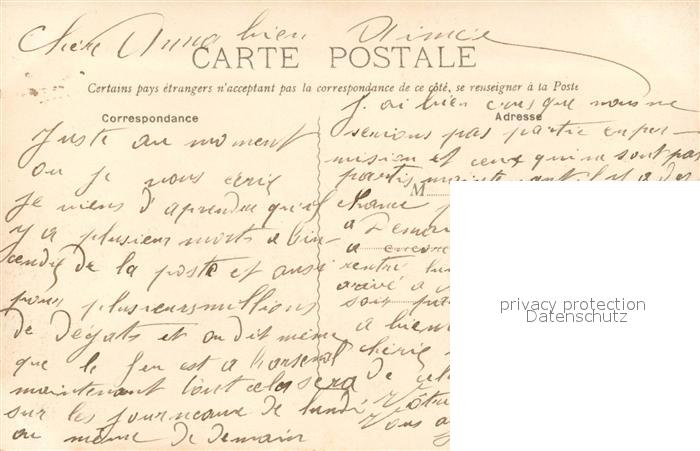 Chère Anna bien Aimée
CARTE POSTALE
Certains pays étrangers n'acceptant pas la correspondance de ce côté, se renseigner à la Poste
Correspondance
Adresse
Juste au moment
ou je vous écrie
je viens d'aprendre qu'il
y a plusieur morts a l'in-
cendie de la poste et ausi
pour plusieurs millions
de Dégats et on dit même
que le feu est a l'arsenal
maintenant tout cela sera
sur les journeaux de lundi
ou même de demain
J. ai bien crus que nous ne
serions pas partie en per-
mision et ceux qui ne sont pas
partis
M
chance
a Demar
a encore
rentré
arivé a
soit
a bien
chérie
de
Votre
Vous a
privacy protection
Datenschutz